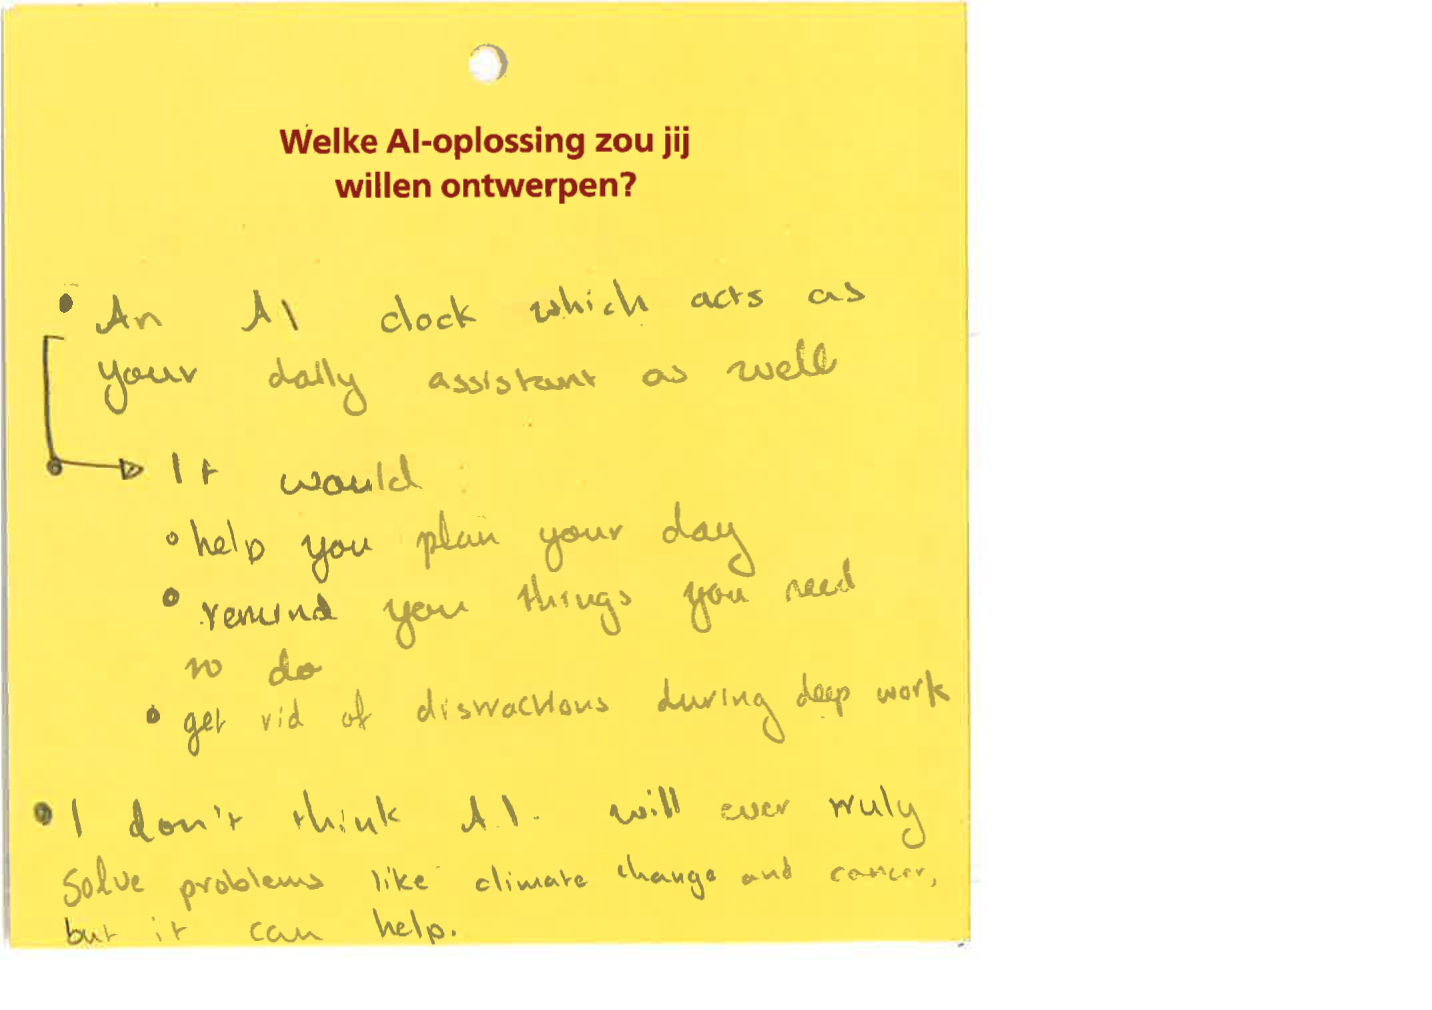 Welke AI-oplossing zou jij
willen ontwerpen?
• An AI clock which acts as
your daily assistant as well
It would
• help you plan your day
• remind you things you need
to do
• get rid of distractions during deep work
• I don't think A.I. will ever truly
solve problems like climate change and cancer,
but it can help.